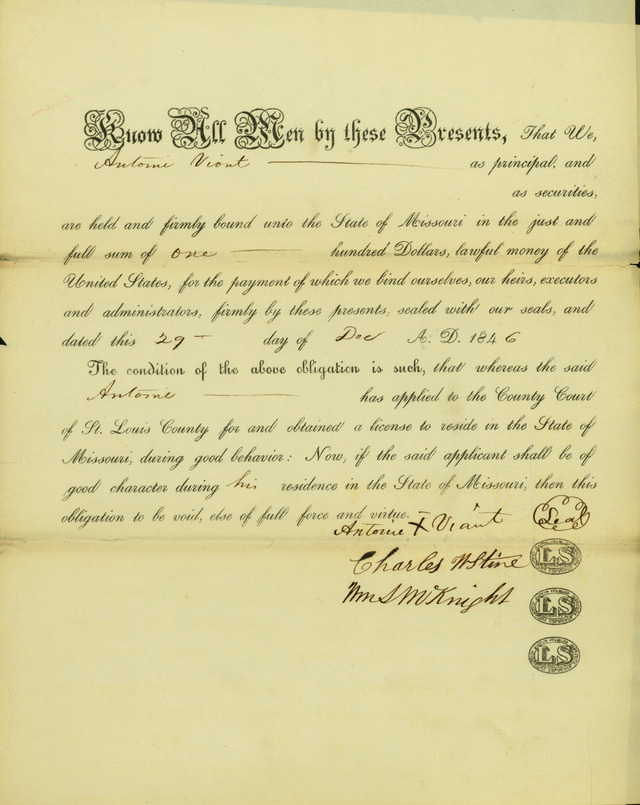 Know All Men by these Presents, That We,
Antoine Viant as principal, and
as securities,
are held and firmly bound unto the State of Missouri in the just and
full sum of one hundred Dollars, lawful money of the
United States, for the payment of which we bind ourselves, our heirs, executors
and administrators, firmly by these presents, sealed with our seals, and
dated this 29 day of Dec A. D. 1846
The condition of the above obligation is such, that whereas the said
Antoine has applied to the County Court
of St. Louis County for and obtained a license to reside in the State of
Missouri, during good behavior: Now, if the said applicant shall be of
good character during his residence in the State of Missouri, then this
obligation to be void, else of full force and virtue.
Antoine X Viant Seal
Charles W Stine LS
Wm S McKnight LS
LS